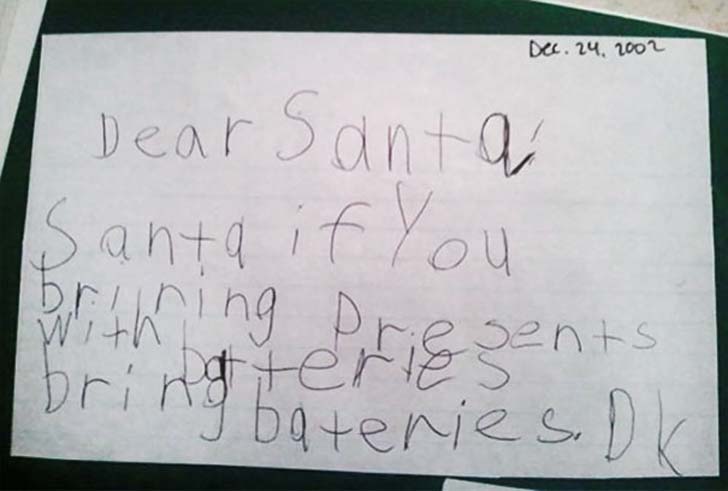 Dec. 24, 2002
Dear Santa
Santa if You
brining Presents
with batteries
bring bateries. Dk